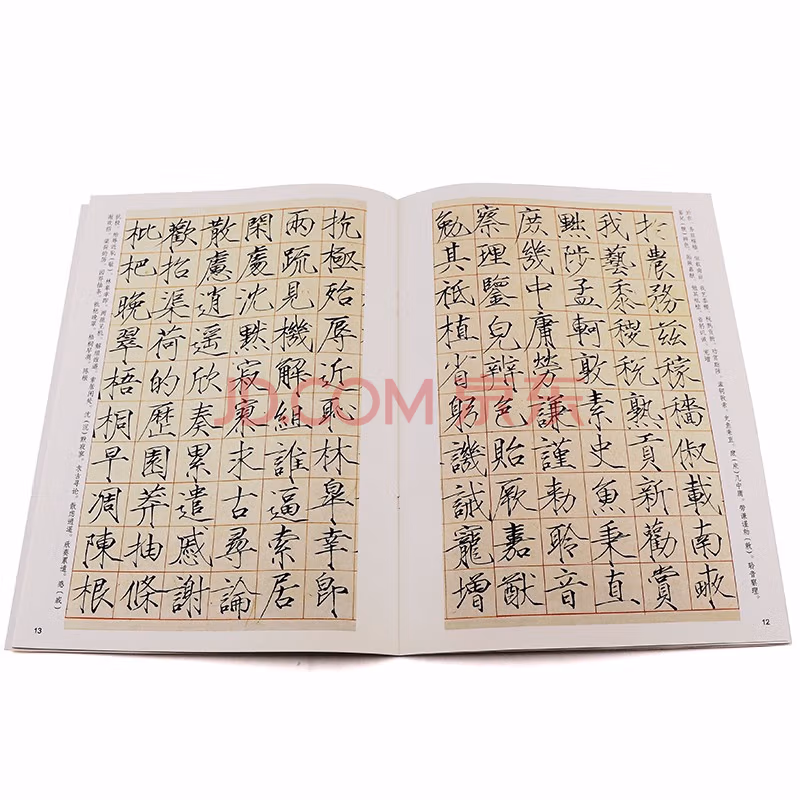 於農務茲稼穡俶載南畝
我藝黍稷稅熟貢新勸賞
黜陟孟軻敦素史魚秉直
庶幾中庸勞謙謹勑聆音
察理鑒皃辨色貽厥嘉猷
勉其祗植省躬譏誡寵增
12
抗極殆辱近恥林皋幸即
兩疏見機解組誰逼索居
閑處沈默寂寥求古尋論
散慮逍遙欣奏累遣慼謝
歡招渠荷的歷園莽抽條
枇杷晚翠梧桐早凋陳根
13
JD.COM 京东